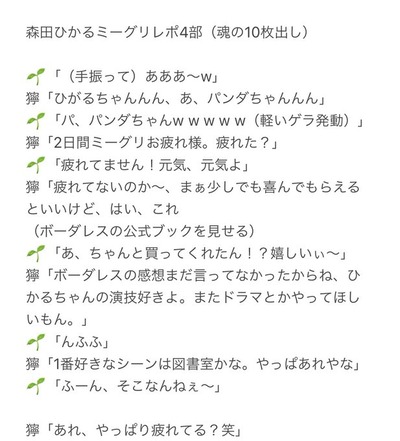 森田ひかるミーグリレポ4部（魂の10枚出し）
🌱「（手振って）あああ〜w」
獰「ひがるちゃんんん、あ、パンダちゃんんん」
🌱「パ、パンダちゃんwｗｗｗｗ（軽いゲラ発動）」
獰「2日間ミーグリお疲れ様。疲れた？」
🌱「疲れてません！元気、元気よ」
獰「疲れてないのか〜、まぁ少しでも喜んでもらえる
といいけど、はい、これ
（ボーダレスの公式ブックを見せる）
🌱「あ、ちゃんと買ってくれたん！？嬉しいぃ〜」
獰「ボーダレスの感想まだ言ってなかったからね、ひ
かるちゃんの演技好きよ。またドラマとかやってほし
いもん。」
🌱「んふふ」
獰「1番好きなシーンは図書室かな。やっぱあれやな」
🌱「ふーん、そこなんねぇ〜」
獰「あれ、やっぱり疲れてる？笑」